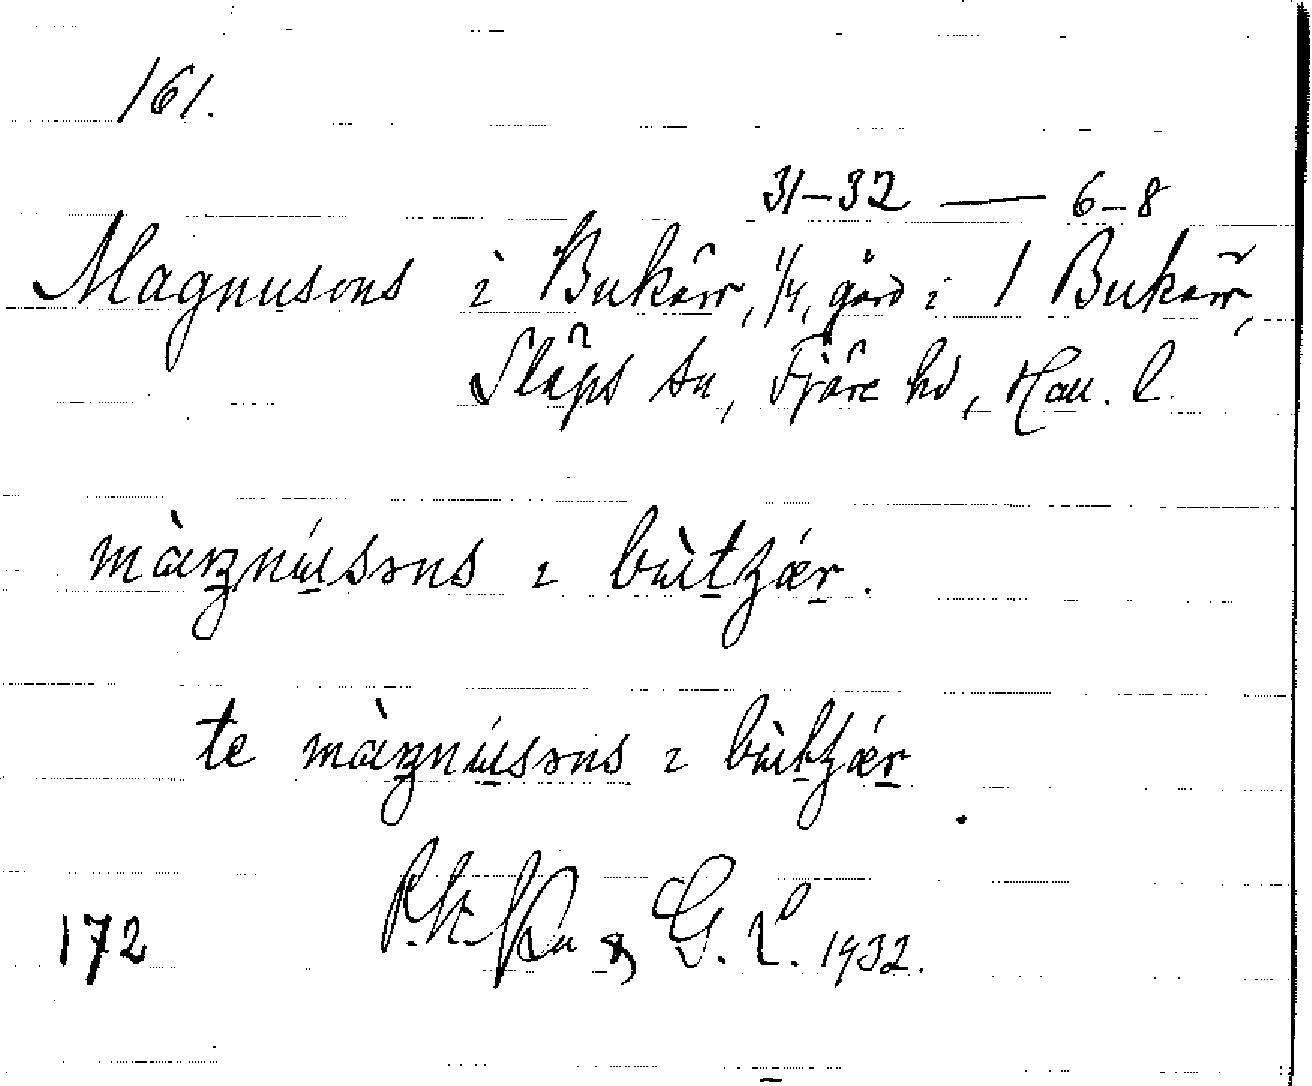 161.
31-32 — 6-8
Magnusons i Bukärr, 1/4, gård i 1 Bukärr,
Släps sn, Fjäre hd, Hall. l.
màꞬnúsɔns ɩ bùtʒǽr.
te màꞬnúsɔns ɩ bùtʒǽr
172
G. L. 1932.